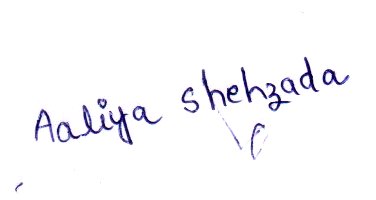 Aaliya shehzada